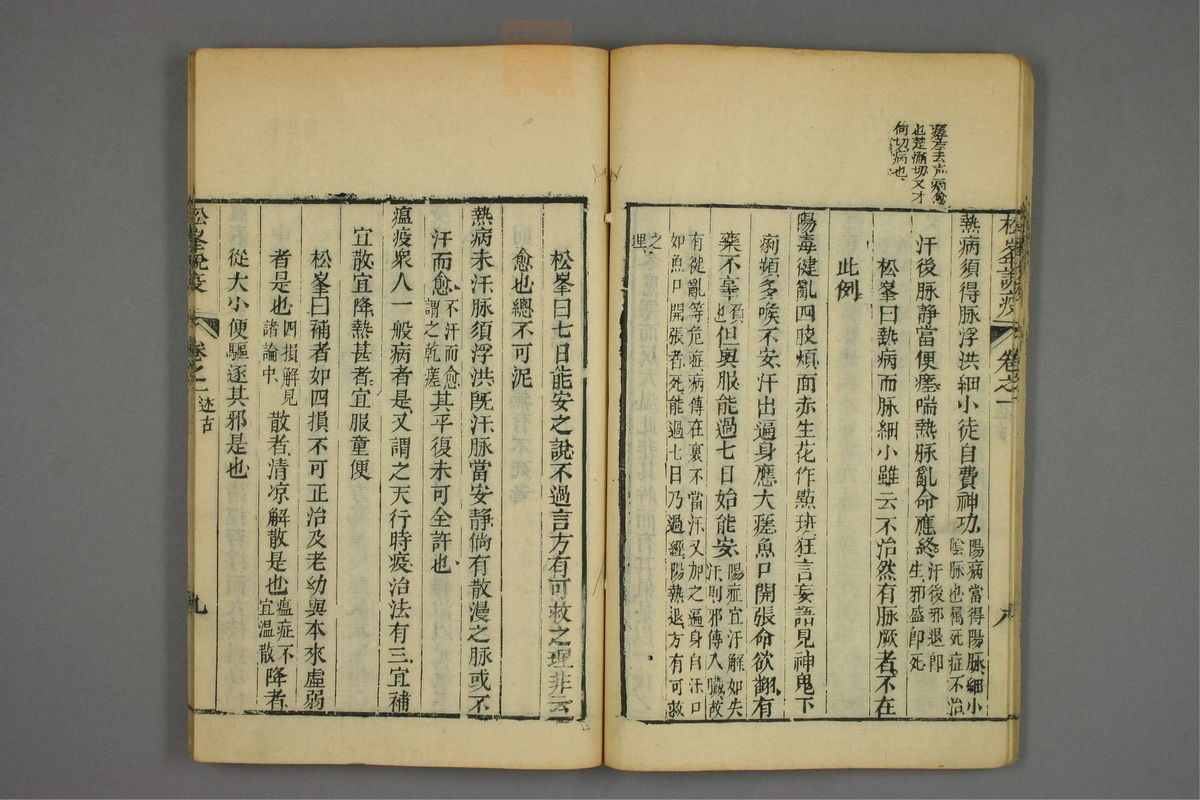 瘥差去声病愈
也楚懈切又才
何切病也
松峯說疫 卷之一 八
熱病須得脉浮洪細小徒自費神功陽病當得陽脉細小
陰脉也属死症不治
汗後脉静當便瘥喘熱脉亂命應終汗後邪退即
生邪盛即死
松峯曰熱病而脉細小雖云不治然有脉厥者不在
此例
陽毒健亂四肢煩面赤生花作點斑狂言妄語見神鬼下
痢頻多喉不安汗出遍身應大瘥魚口開張命欲翻有
藥不辜負也但與服能過七日始能安陽症宜汗解如失
汗則邪傳入臟故
有健亂等危症病傳在裏不當汗又加之遍身自汗口
如魚口開張者死能過七日乃過經陽熱退方有可救
之理
松峯曰七日能安之說不過言方有可救之理非云
愈也總不可泥
熱病未汗脉須浮洪旣汗脉當安静倘有散漫之脉或不
汗而愈不汗而愈
謂之乾瘥其平復未可全許也
瘟疫衆人一般病者是又謂之天行時疫治法有三宜補
宜散宜降熱甚者宜服童便
松峯曰補者如四損不可正治及老幼與本來虛弱
者是也四損解見
諸論中散者清凉解散是也瘟症不
宜温散降者
從大小便驅逐其邪是也
松峯說疫 卷之一 述古 九